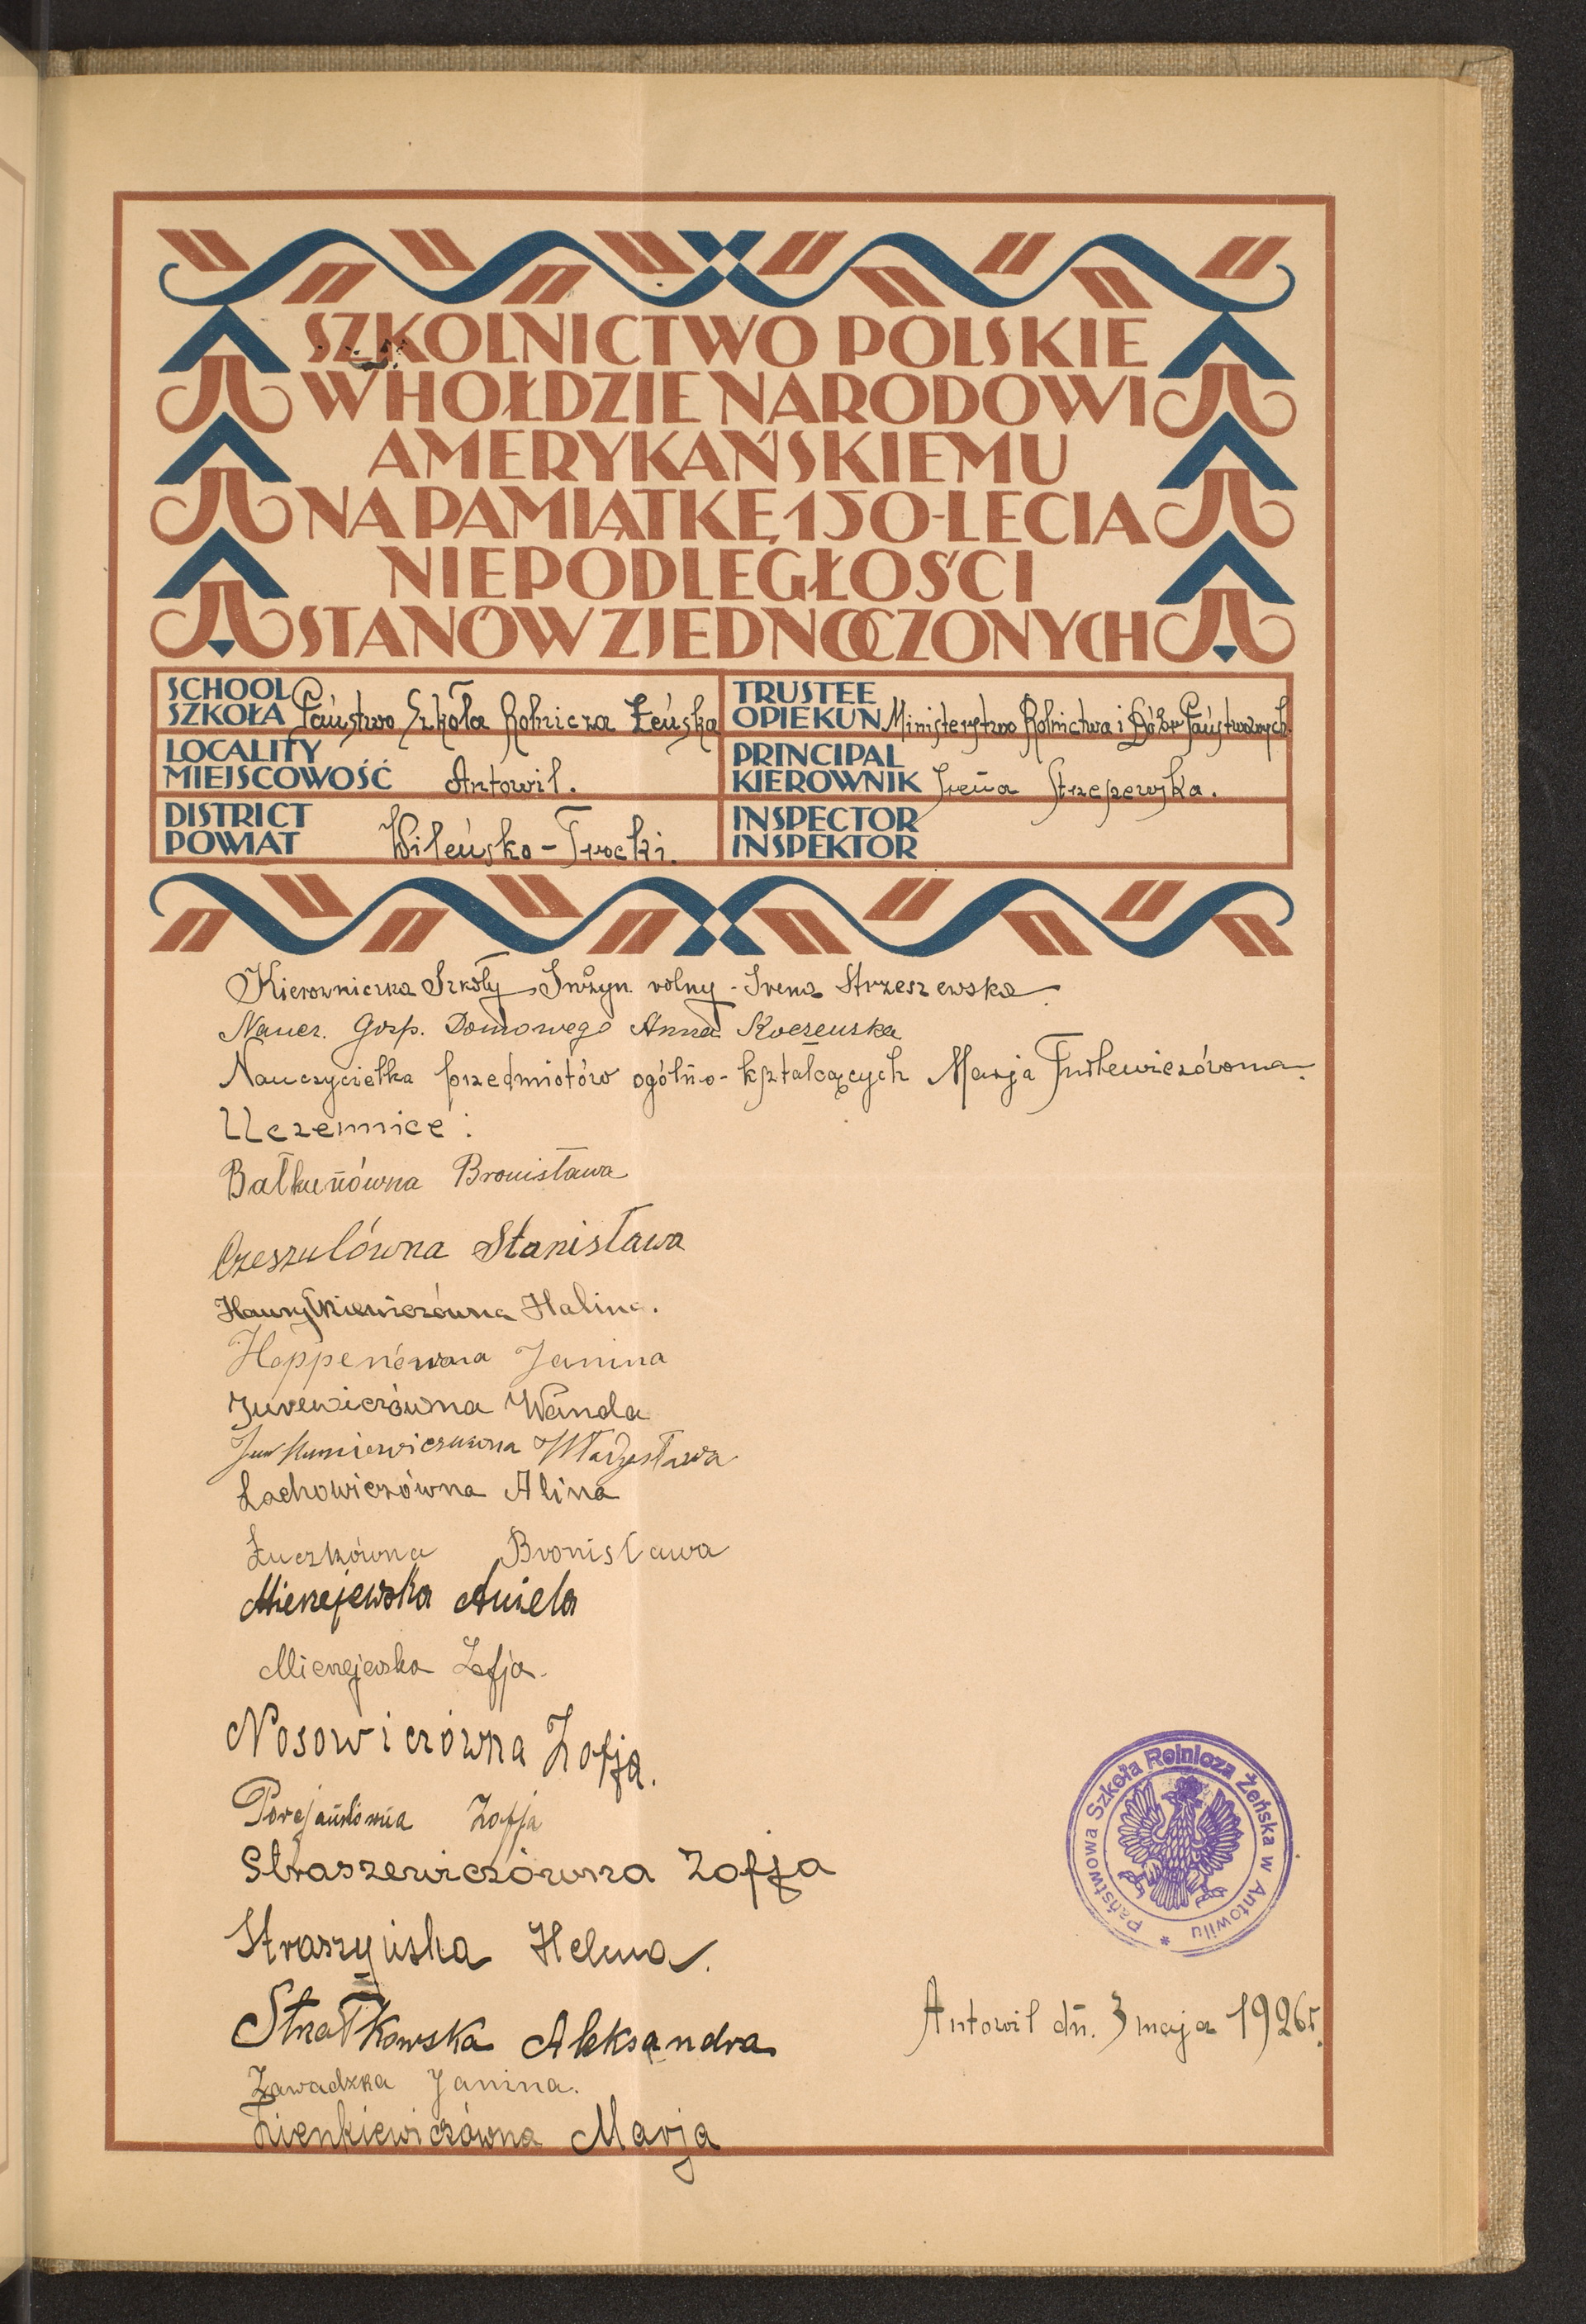 SZKOLNICTWO POLSKIE
W HOŁDZIE NARODOWI
AMERYKAŃSKIEMU
NA PAMIĄTKĘ 150-LECIA
NIEPODLEGŁOŚCI
STANÓW ZJEDNOCZONYCH
SCHOOL
SZKOŁA Państwo Szkoła Rolnicza Żeńska
TRUSTEE
OPIEKUN Ministerstwo Rolnictwa i Dóbr Państwowych.
LOCALITY
MIEJSCOWOŚĆ Antowil.
PRINCIPAL
KIEROWNIK Irena Strzeszewska.
DISTRICT
POWIAT Wileńsko-Trocki.
INSPECTOR
INSPEKTOR
Kierowniczka Szkoły Inżyn. rolny - Irena Strzeszewska.
Naucz. Gosp. Domowego Anna
Nauczycielka przedmiotów ogólno-kształcących Marja
Uczennice:
Bałkunówna Bronisława
Czeszulówna Stanisława
Halina.
Hoppenówna Janina
Jurewiczówna Wanda
Władysława
Lachowiczówna Alina
Łuczkówna Bronisława
Mierzejewska Aniela
Mierzejewska Zofja.
Nosowiczówna Zofja.
Zofja
Straszewiczówna Zofja
Straszyńska Helena.
Strzałkowska Aleksandra
Zawadzka Janina.
Zienkiewiczówna Marja
Państwowa Szkoła Rolnicza Żeńska w Antowilu *
Antowil dn. 3 maja 1926r.